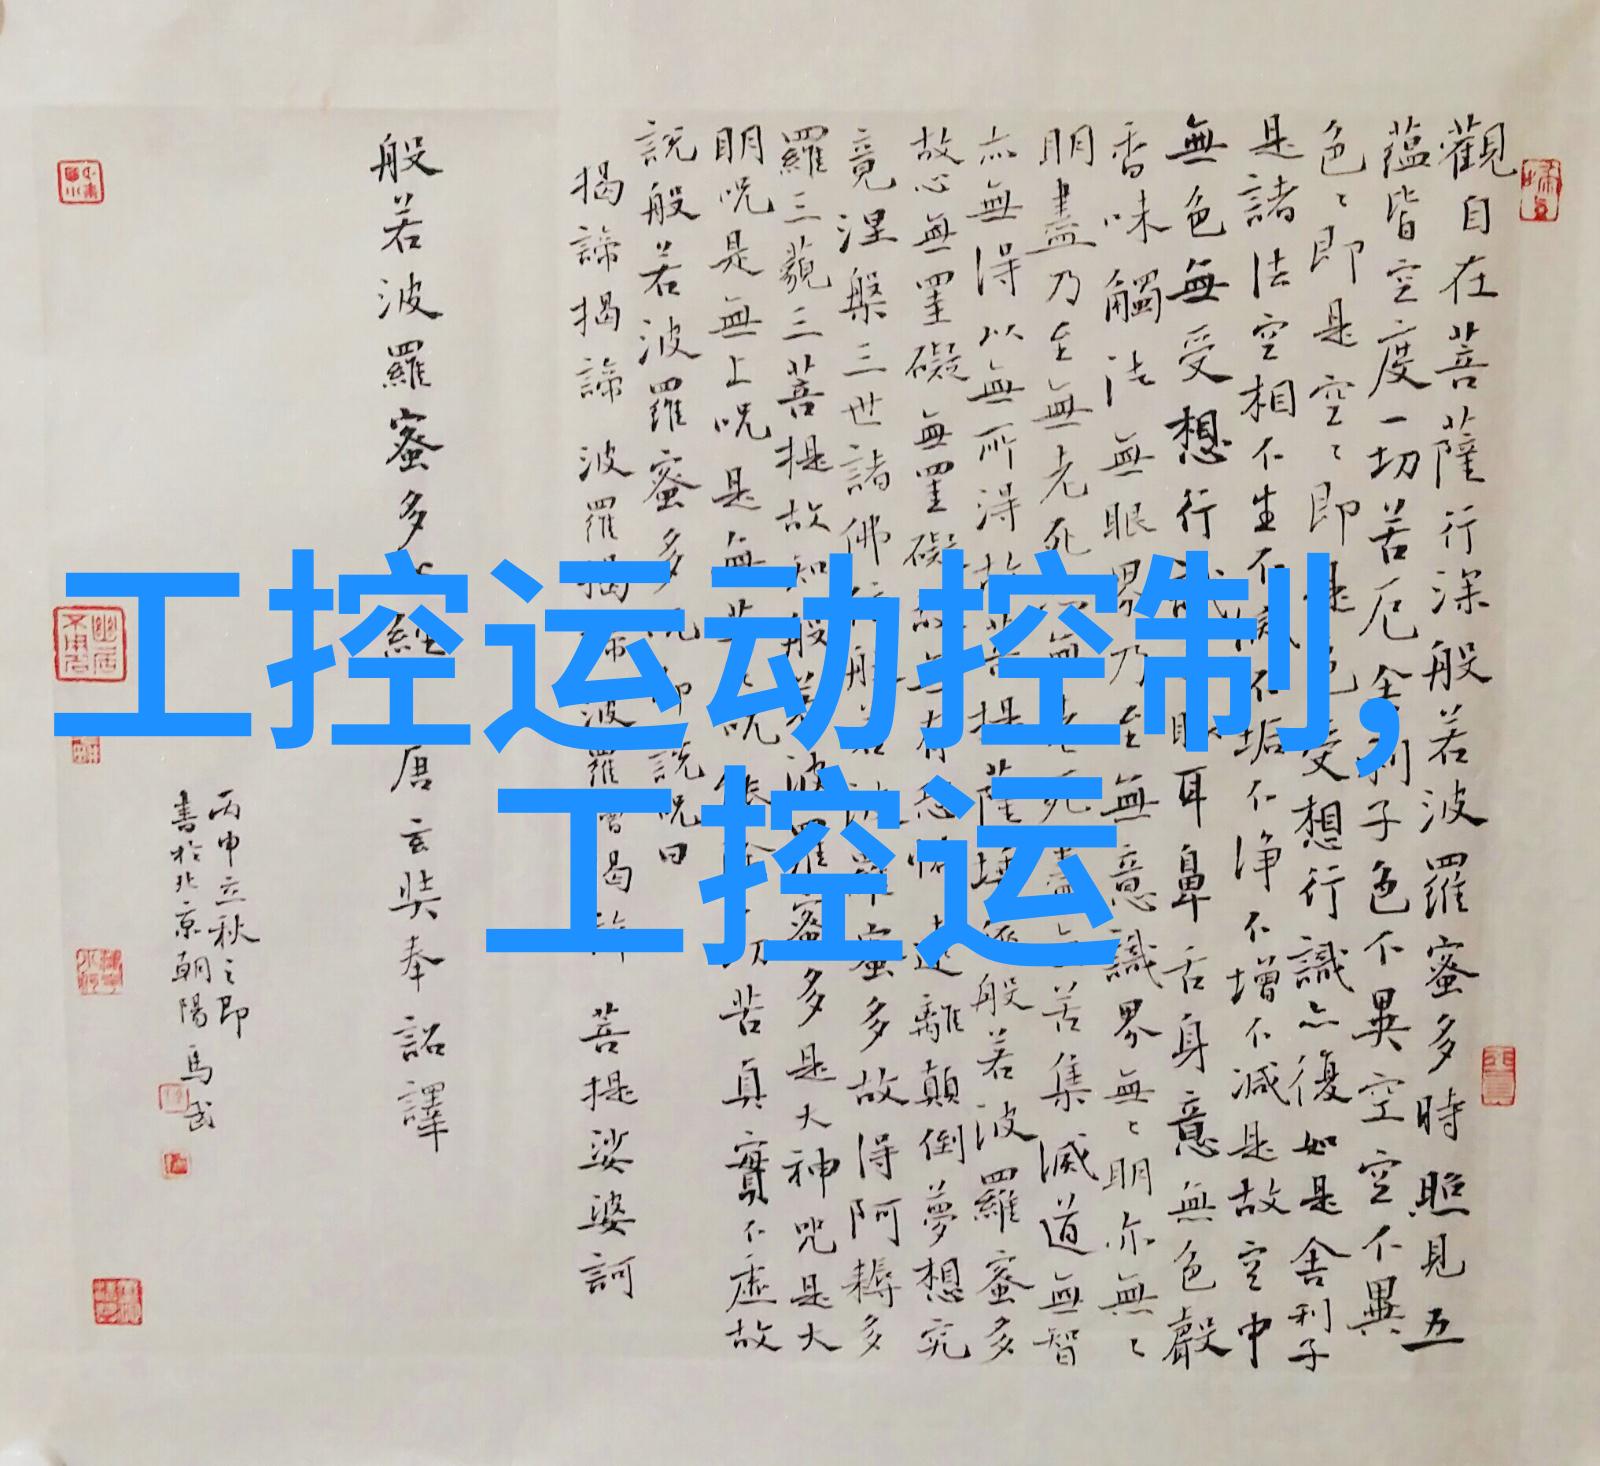 觀自在菩薩行深般若波羅蜜多時照見五
蘊皆空度一切苦厄舍利子色不異空空不異
色〻即是空〻即是色受想行識亦復如是舍利子
是諸法空相不生不滅不垢不净不增不減是故空中
無色無受想行識無眼耳鼻舌身意無色聲
香味觸法無眼界乃至無意識界無〻明亦無〻
明盡乃至無老死亦無老死盡無苦集滅道無智
亦無得以無所得故菩提薩埵依般若波羅蜜多
故心無罣礙無罣礙故無有恐怖遠離顛倒夢想究
竟涅槃三世諸佛依般若波羅蜜多故得阿耨多
羅三藐三菩提故知般若波羅蜜多是大神咒是大
明呪是無上呪是無等〻呪能除一切苦真實不虛故
說般若波羅蜜多呪即說呪曰
揭諦揭諦 波羅揭諦 波羅僧揭諦 菩提娑婆訶
般若波羅蜜多心經 唐玄奘奉詔譯
丙申立秋之即
書於北京朝陽 馬武
工控运动控制,
工控运